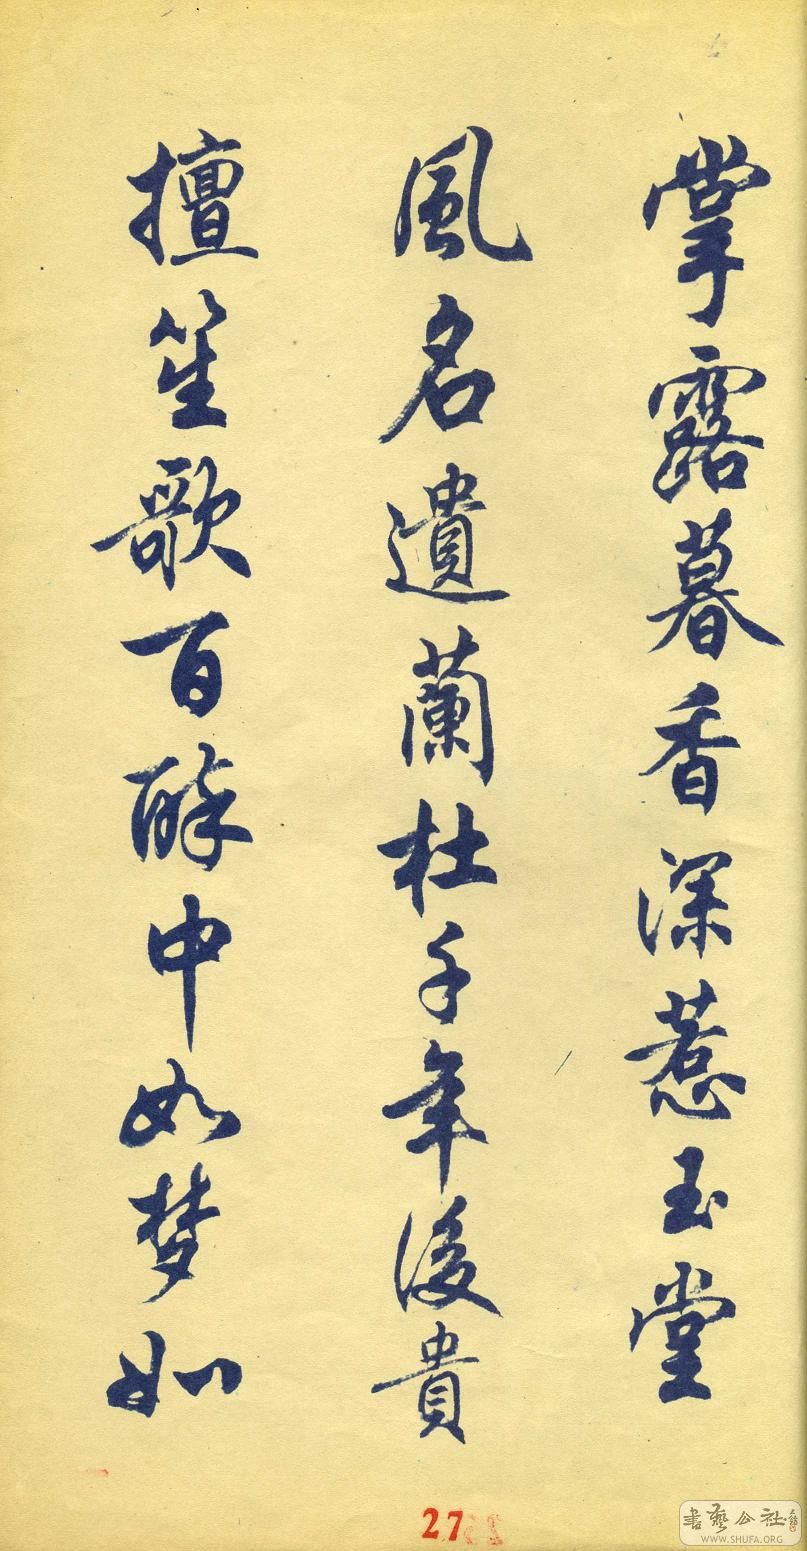 掌露暮香深惹玉堂
風名遺蘭杜千年後貴
擅笙歌百醉中如梦如
27
書藝公社
WWW.SHUFA.ORG